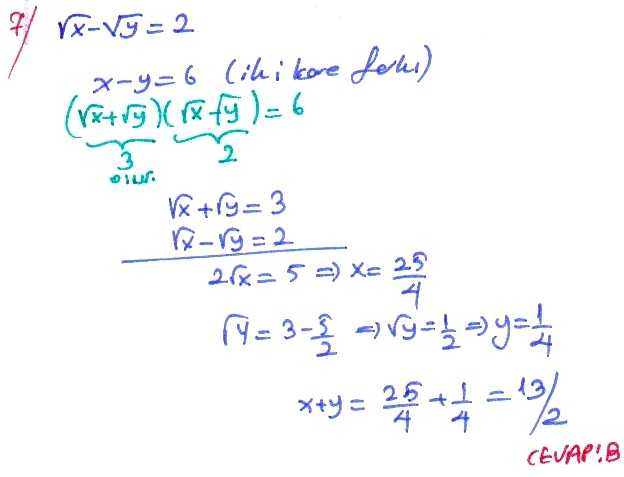 7/ √x-√y=2
x-y=6 (iki kare farkı)
(√x+√y)(√x-√y)=6
3 2
olur.
√x+√y=3
√x-√y=2
2√x=5 ⇒ x=25/4
√y=3-5/2 ⇒ √y=1/2 ⇒ y=1/4
x+y=25/4+1/4=13/2
CEVAP:B